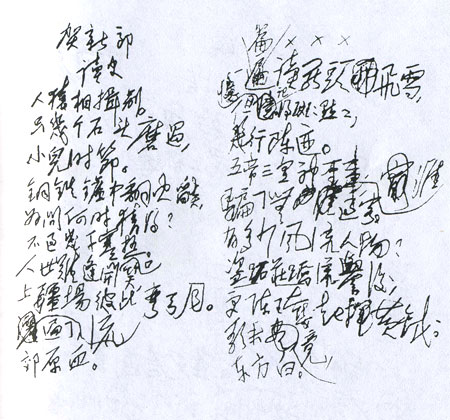 贺新郎
读史
人猿相揖别。
只几个石头磨过,
小儿时节。
铜铁炉中翻火焰,
为问何时猜得?
不过几千寒热。
人世难逢开口笑。
上疆场彼此弯弓月。
遍了流
郊原血。
篇 × × ×
遍读罢头飞雪,
记得斑点,
几行陈迹。
五帝三皇神圣事,
骗了无涯过客。
有多少风流人物?
盗跖庄蹻流誉后,
更陈王奋起挥黄钺。
歌未竟,
东方白。